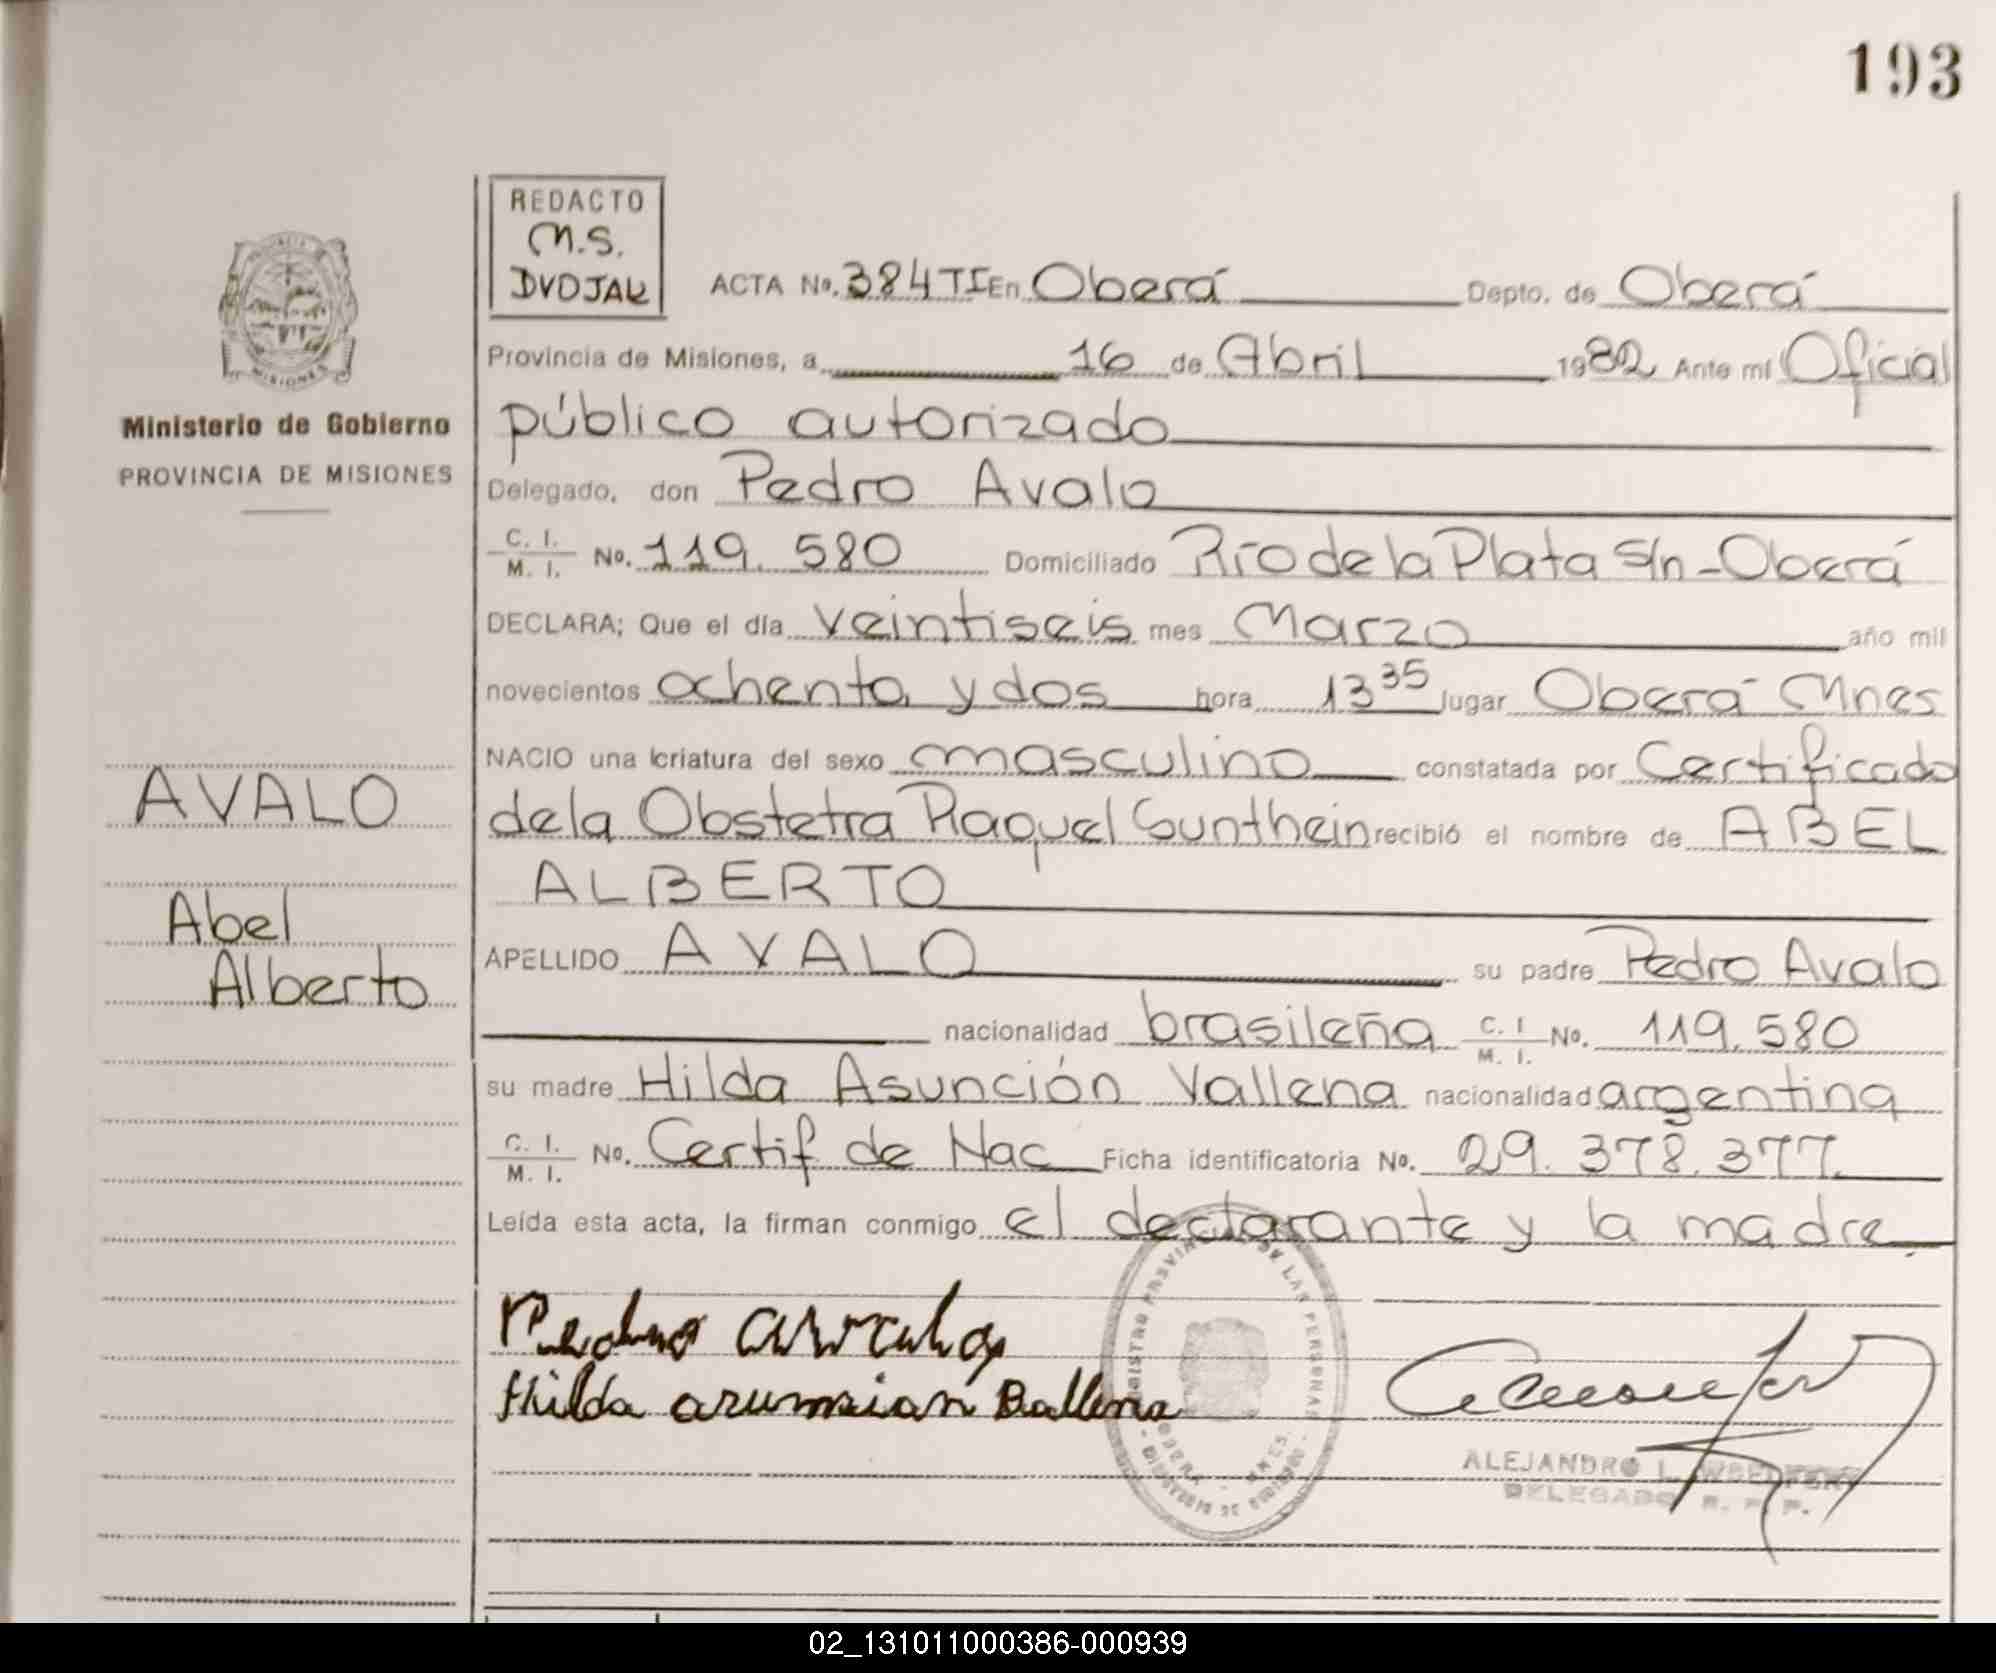 193
REDACTO
M.S.
DVOJAK
ACTA No. 384 TI En Oberá Depto. de Oberá
Provincia de Misiones, a 16 de Abril 1982 Ante mi Oficial
público autorizado
Ministerio de Gobierno
PROVINCIA DE MISIONES
Delegado, don Pedro Avalo
C. I. / M. I. No. 119.580 Domiciliado Río de la Plata S/n - Oberá
DECLARA; Que el día veintiseis mes Marzo año mil
novecientos ochenta y dos hora 13 35 lugar Oberá Mnes
NACIO una criatura del sexo masculino constatada por Certificado
de la Obstetra Raquel Sunthein recibió el nombre de ABEL
ALBERTO
AVALO
Abel
Alberto
APELLIDO AVALO su padre Pedro Avalo
nacionalidad brasileña C. I / M. I. No. 119.580
su madre Hilda Asunción Vallena nacionalidad argentina
C. I. / M. I. No. Certif de Nac Ficha identificatoria No. 29.378.377.
Leída esta acta, la firman conmigo el declarante y la madre.
Hilda Ballena
ALEJANDRO L.
DELEGADO R. P. P.
02_131011000386-000939